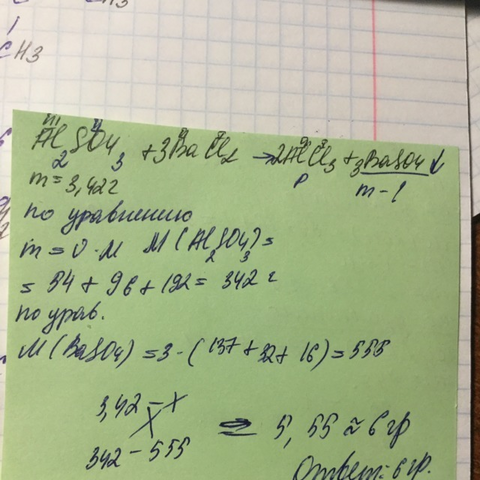 CH3
Al2SO43 + 3BaCl2 → 2AlCl3 + 3BaSO4↓
m = 3,42г
р
m - ?
по уравнению
m = υ · M M(Al2SO43) =
= 54 + 96 + 192 = 342 г
по урав.
M(BaSO4) = 3 - (137 + 32 + 16) = 555
3,42 - x
342 - 555
= 5,55 ≈ 6 гр
Ответ: 6 гр.